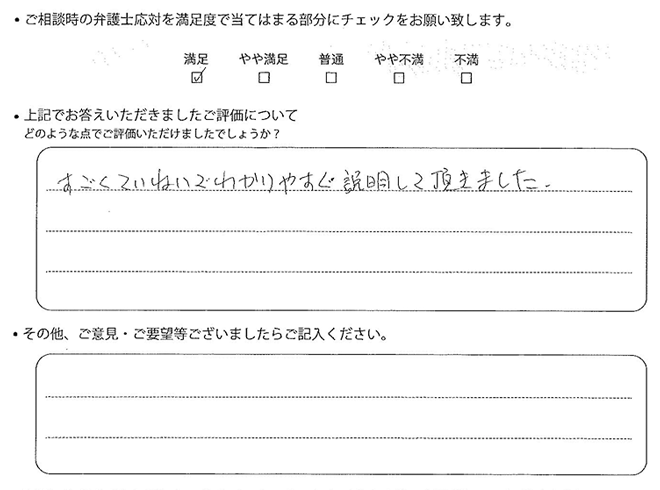 ・ご相談時の弁護士応対を満足度で当てはまる部分にチェックをお願い致します。
満足 やや満足 普通 やや不満 不満
☑ ☐ ☐ ☐ ☐
・上記でお答えいただきましたご評価について
どのような点でご評価いただけましたでしょうか？
すごくていねいでわかりやすく説明して頂きました.
・その他、ご意見・ご要望等ございましたらご記入ください。